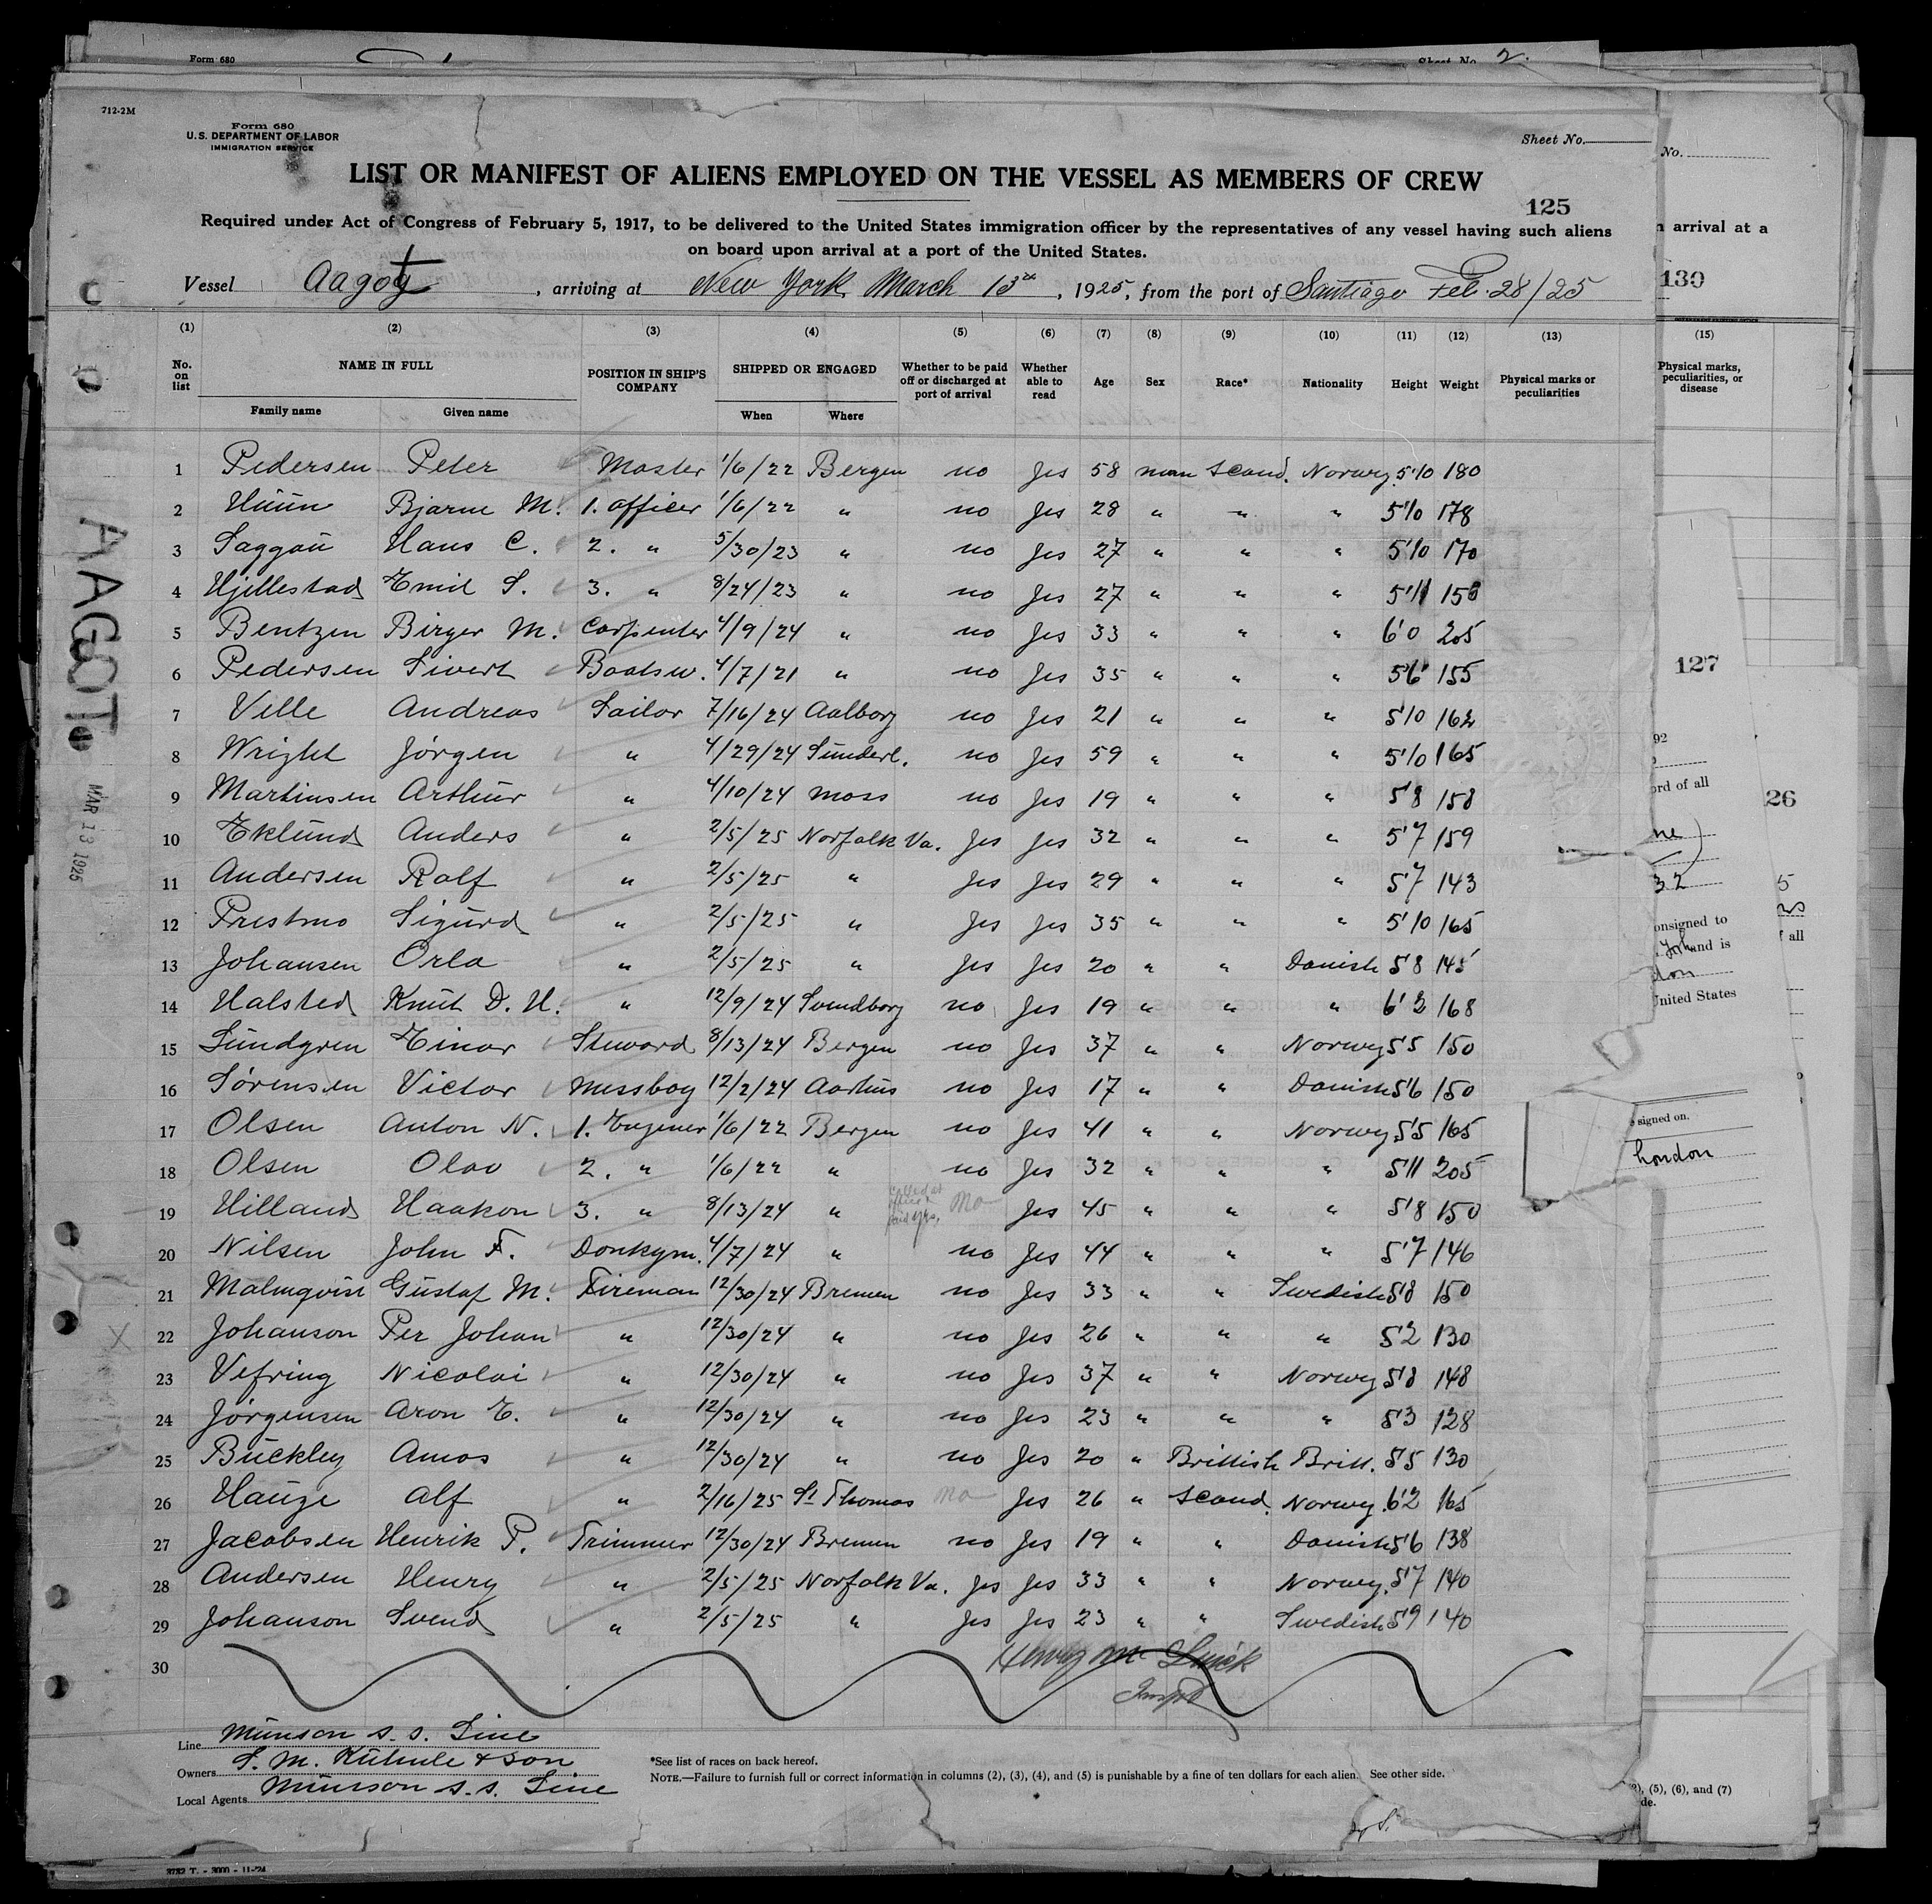 Form 680
Sheet No. 2.
712-2M
Form 680
U.S. DEPARTMENT OF LABOR
IMMIGRATION SERVICE
Sheet No.
LIST OR MANIFEST OF ALIENS EMPLOYED ON THE VESSEL AS MEMBERS OF CREW
125
Required under Act of Congress of February 5, 1917, to be delivered to the United States immigration officer by the representatives of any vessel having such aliens
on board upon arrival at a port of the United States.
Vessel Aagot, arriving at New York March 13th, 1925, from the port of Santiago Feb. 28/25
(1) (2) (3) (4) (5) (6) (7) (8) (9) (10) (11) (12) (13)
No. on list NAME IN FULL Family name Given name POSITION IN SHIP'S COMPANY SHIPPED OR ENGAGED When Where Whether to be paid off or discharged at port of arrival Whether able to read Age Sex Race* Nationality Height Weight Physical marks or peculiarities
1 Pedersen Peter Master 1/6/22 Bergen no Yes 58 man Scand. Norwg. 5'10 180
2 Huun Bjarne M. 1. officer 1/6/22 " no Yes 28 " " " 5'10 178
3 Saggau Hans C. 2. " 5/30/23 " no Yes 27 " " " 5'10 170
4 Hjellestad Emil S. 3. " 8/24/23 " no Yes 27 " " " 5'11
5 Bentzen Birger M. Carpenter 4/9/24 " no Yes 33 " " " 6'0 205
6 Pedersen Sivert Boatsw. 4/7/21 " no Yes 35 " " " 5'6 155
7 Ville Andreas Sailor 7/16/24 Aalborg no Yes 21 " " " 5'10 162
8 Wright Jörgen " 4/29/24 Sunderl. no Yes 59 " " " 5'10 165
9 Martinsen Arthur " 4/10/24 Moss no Yes 19 " " " 5'8 158
10 Eklund Anders " 2/5/25 Norfolk Va. Yes Yes 32 " " " 5'7 159
11 Andersen Ralf " 2/5/25 " Yes Yes 29 " " " 5'7 143
12 Prestmo Sigurd " 2/5/25 " Yes Yes 35 " " " 5'10 165
13 Johansen Orla " 2/5/25 " Yes Yes 20 " " Danish 5'8 145
14 Halsted Knut D. H. " 12/9/24 Svendborg no Yes 19 " " " 6'2 168
15 Lundgren Einar Steward 8/13/24 Bergen no Yes 37 " " Norwg 5'5 150
16 Sørensen Victor Messboy 12/2/24 Aarhus no Yes 17 " " Danish 5'6 150
17 Olsen Anton N. 1. Engener 1/6/22 Bergen no Yes 41 " " Norwg 5'5 165
18 Olsen Olav 2. " 1/6/22 " no Yes 32 " " " 5'11 205
19 Hilland Haakon 3. " 8/13/24 " no Yes 45 " " " 5'8 150
20 Nilsen John F. Donkym. 4/7/24 " no Yes 44 " " " 5'7 146
21 Malmqvist Gustaf M. Fireman 12/30/24 Bremen no Yes 33 " " Swedish 5'8 150
22 Johanson Per Johan " 12/30/24 " no Yes 26 " " " 5'2 130
23 Vefring Nicolai " 12/30/24 " no Yes 37 " " Norwg 5'8 148
24 Jörgensen Aron E. " 12/30/24 " no Yes 23 " " " 5'3 128
25 Buckley Amos " 12/30/24 " no Yes 20 " Brittish Britt. 5'5 130
26 Hauge Alf " 2/16/25 St Thomas no Yes 26 " Scand. Norwg. 6'2 165
27 Jacobsen Henrik P. Trimmer 12/30/24 Bremen no Yes 19 " " Danish 5'6 138
28 Andersen Henry " 2/5/25 Norfolk Va. Yes Yes 33 " " Norwg. 5'7 140
29 Johanson Svend " 2/5/25 " Yes Yes 23 " " Swedish 5'9 140
30
Line Munson S. S. Line
Owners S. M. Kuhnle & Son
Local Agents Munson S. S. Line
*See list of races on back hereof.
NOTE.—Failure to furnish full or correct information in columns (2), (3), (4), and (5) is punishable by a fine of ten dollars for each alien. See other side.
3782 T. - 3000 - 11-'24
AAGOT
MAR 13 1925
No.
n arrival at a
130
(15)
Physical marks,
peculiarities, or
disease
127
92
ord of all
26
32
onsigned to
and is
f all
United States
e signed on.
London
), (5), (6), and (7)
de.